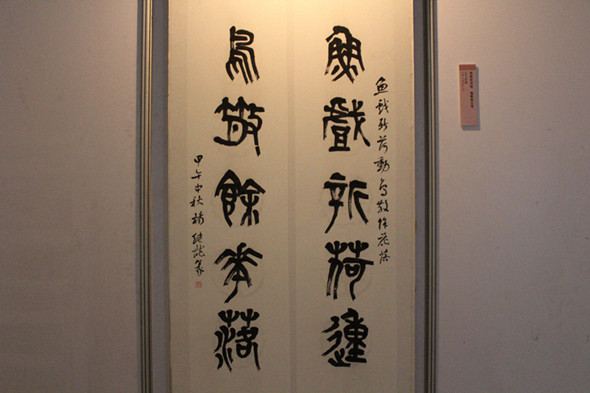 魚戲新荷動
魚戲新荷動鳥散餘花落
鳥散餘花落
甲午中秋楊篆